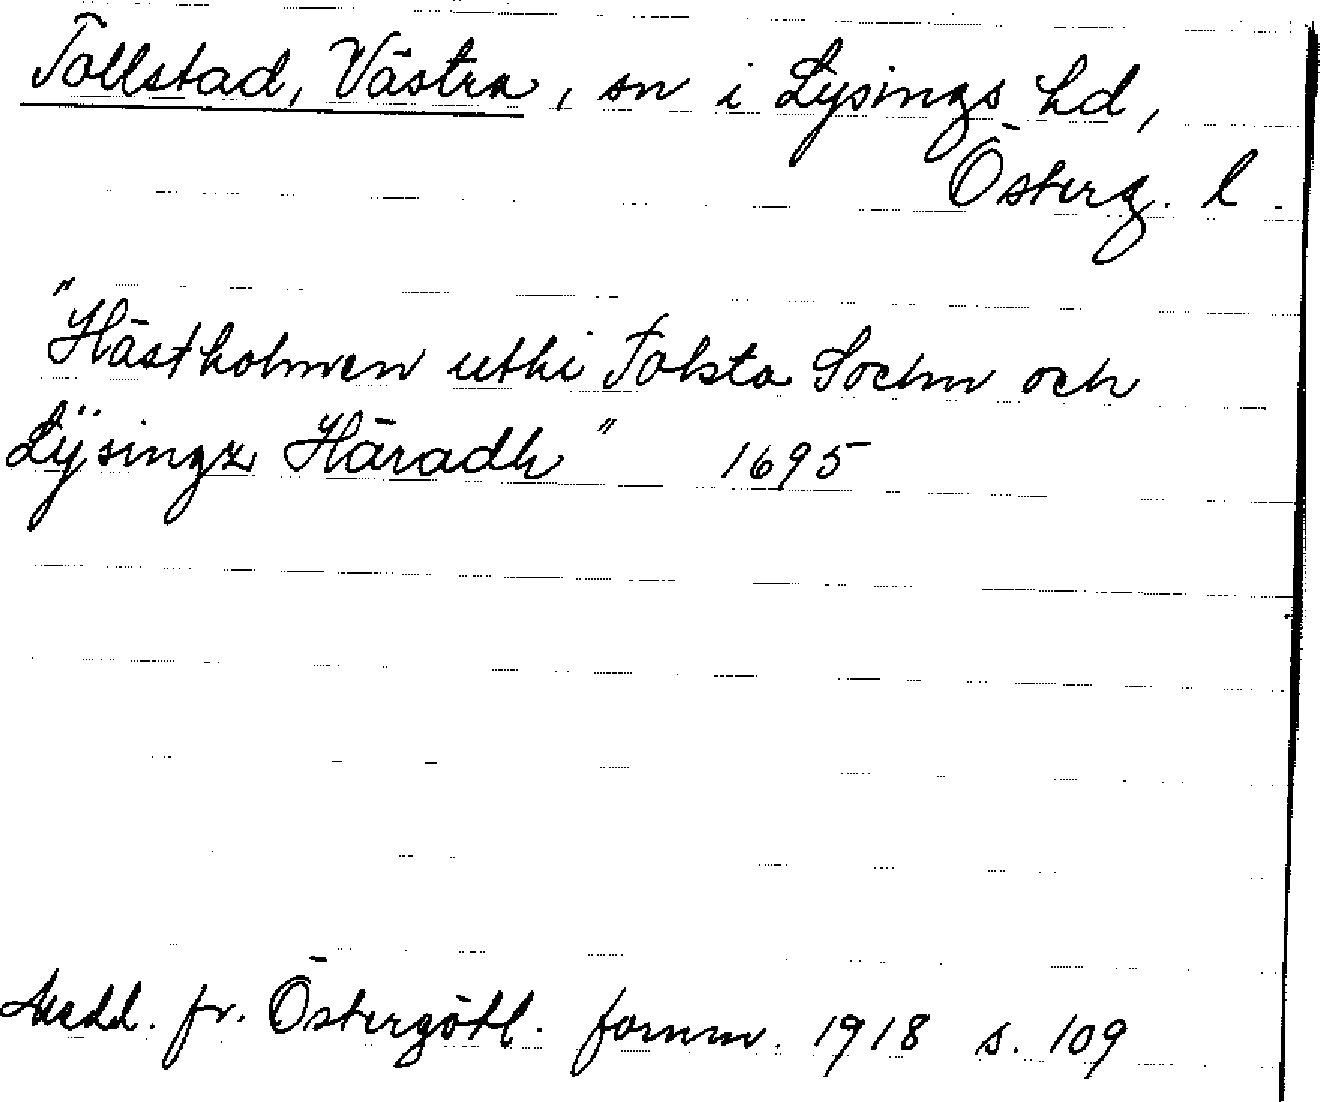 Tollstad, Västra, sn i Lysings hd,
Österg. l.
"Hästholmen uthi Tolsta Sochn och
Lÿsingz Häradh" 1695
Medd. fr. Östergötl. fornm. 1918 s. 109